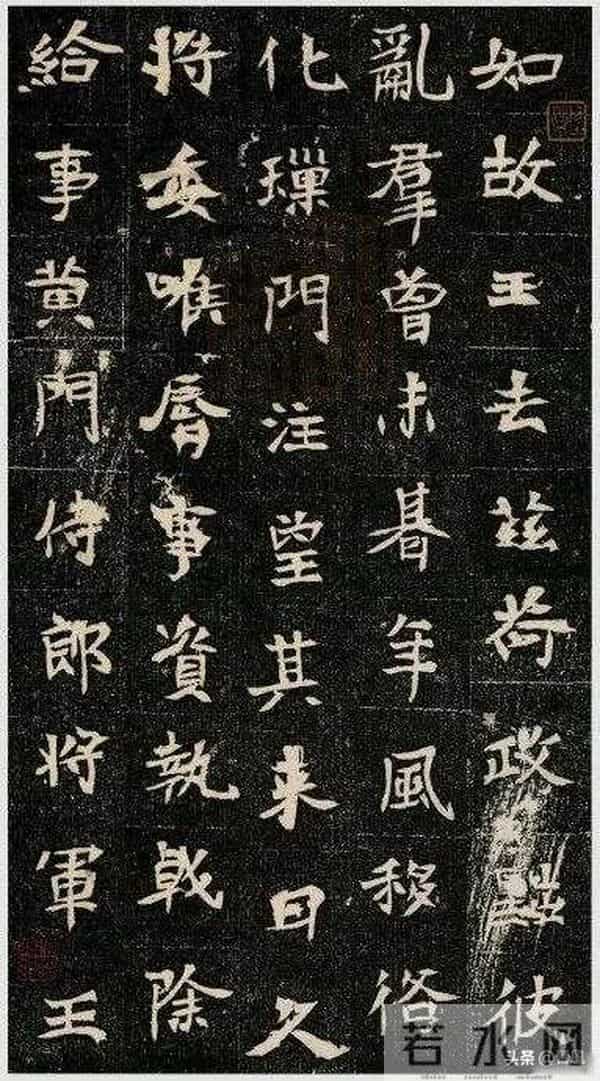 如故王去茲荷政彼
亂羣曾未朞年風移俗
化璅門注望其来日久
将委唯脣事資執戟除
給事黄門侍郎将軍王
若水网
头条